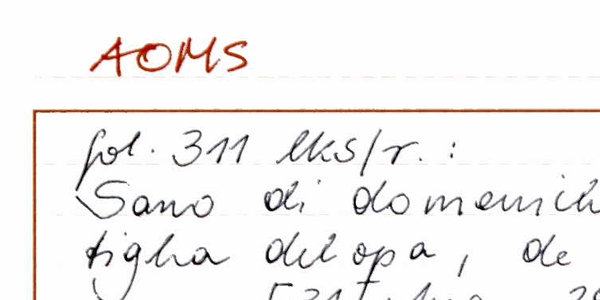 AOMS
fol. 311 lks/r. :
Sano di domenich
tigha delopa, de